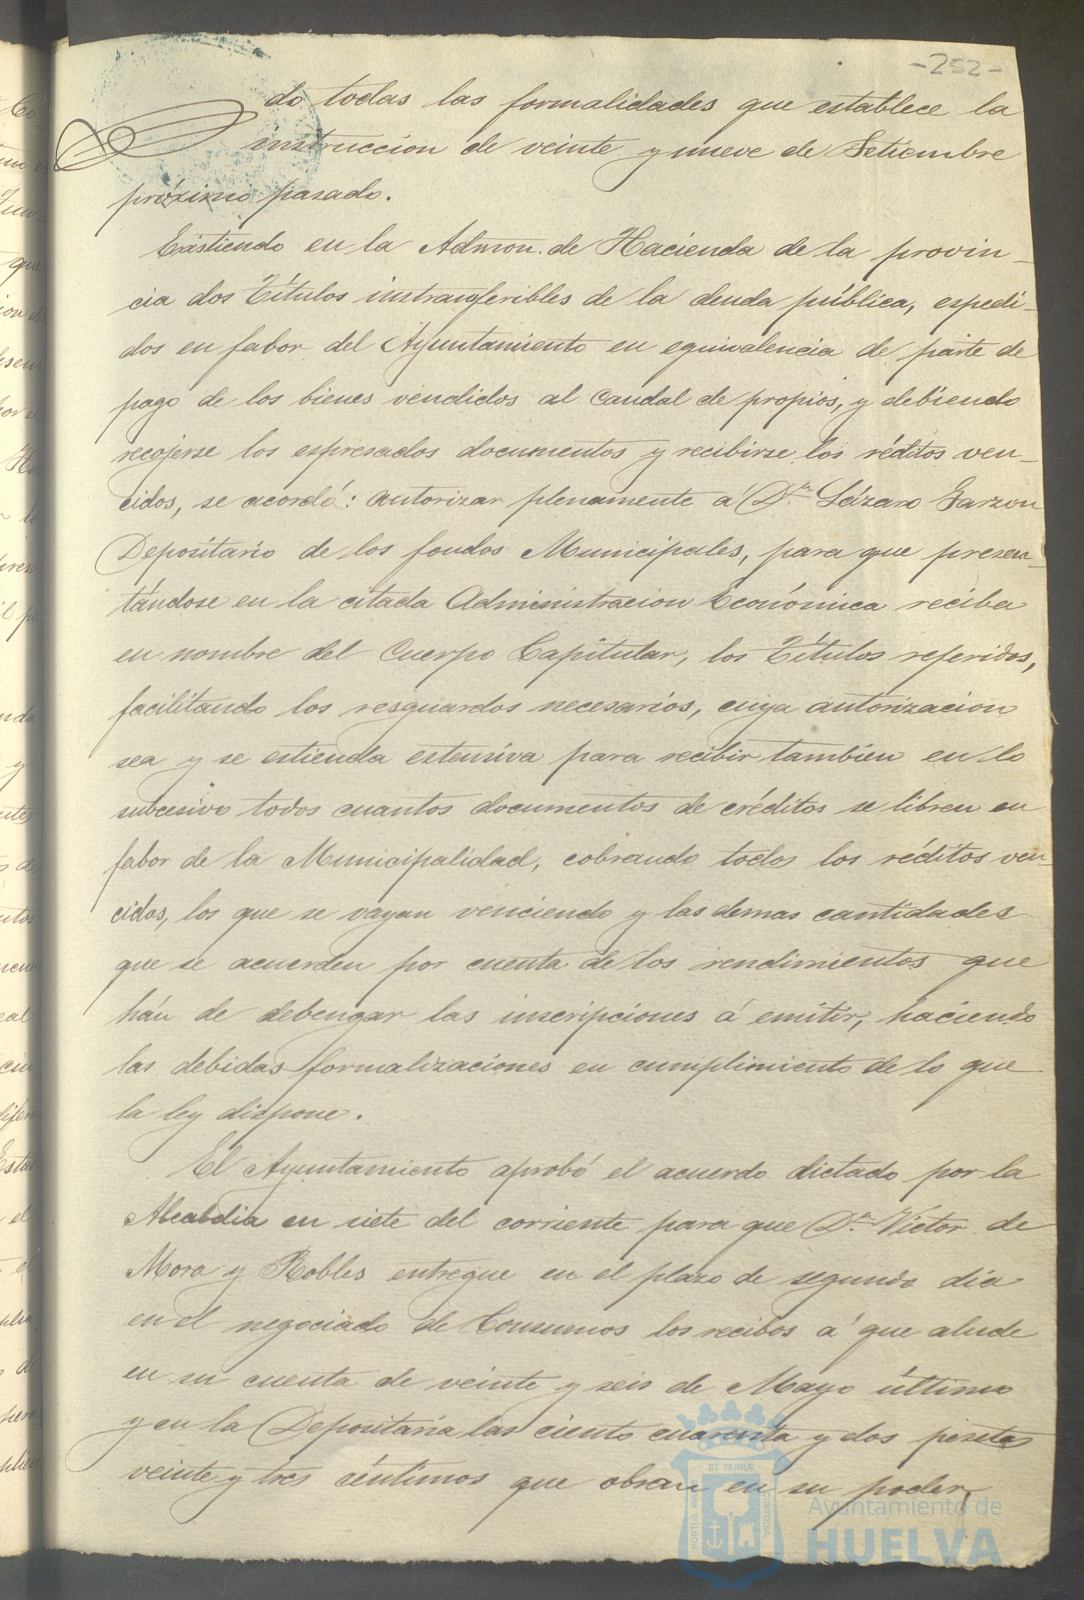 -252-
do todas las formalidades que establece la
instruccion de veinte y nueve de Setiembre
próximo pasado.
Existiendo en la Admon. de Hacienda de la provin-
cia dos Títulos instransferibles de la deuda pública, espedi-
dos en fabor del Ayuntamiento en equivalencia de parte de
pago de los bienes vendidos al Caudal de propios, y debiendo
recojerse los espresados documentos y recibirse los réditos ven-
cidos, se acordó: autorizar plenamente á Dn. Lázaro Garzon
Depositario de los fondos Municipales, para que presen-
tándose en la citada Administracion Económica reciba
en nombre del Cuerpo Capitular, los Títulos referidos,
facilitando los resguardos necesarios, cuya autorizacion
sea y se estienda estensiva para recibir tambien en lo
subcesivo todos cuantos documentos de créditos se libren en
fabor de la Municipalidad, cobrando todos los réditos ven-
cidos, los que se vayan venciendo y las demas cantidades
que se acuerden por cuenta de los rendimientos que
hán de debengar las inscripciones á emitir, haciendo
las debidas formalizaciones en cumplimiento de lo que
la ley dispone.
El Ayuntamiento aprobó el acuerdo dictado por la
Alcaldia en siete del corriente para que Dn. Víctor de
Mora y Robles entregue en el plazo de segundo dia
en el negociado de Consumos los recibos á que alude
en su cuenta de veinte y seis de Mayo último
y en la Depositaria las ciento cuarenta y dos pesetas
veinte y tres céntimos que obran en su poder,
PORTUS MARIS ET TERRÆ CUSTODIA
Ayuntamiento de
HUELVA